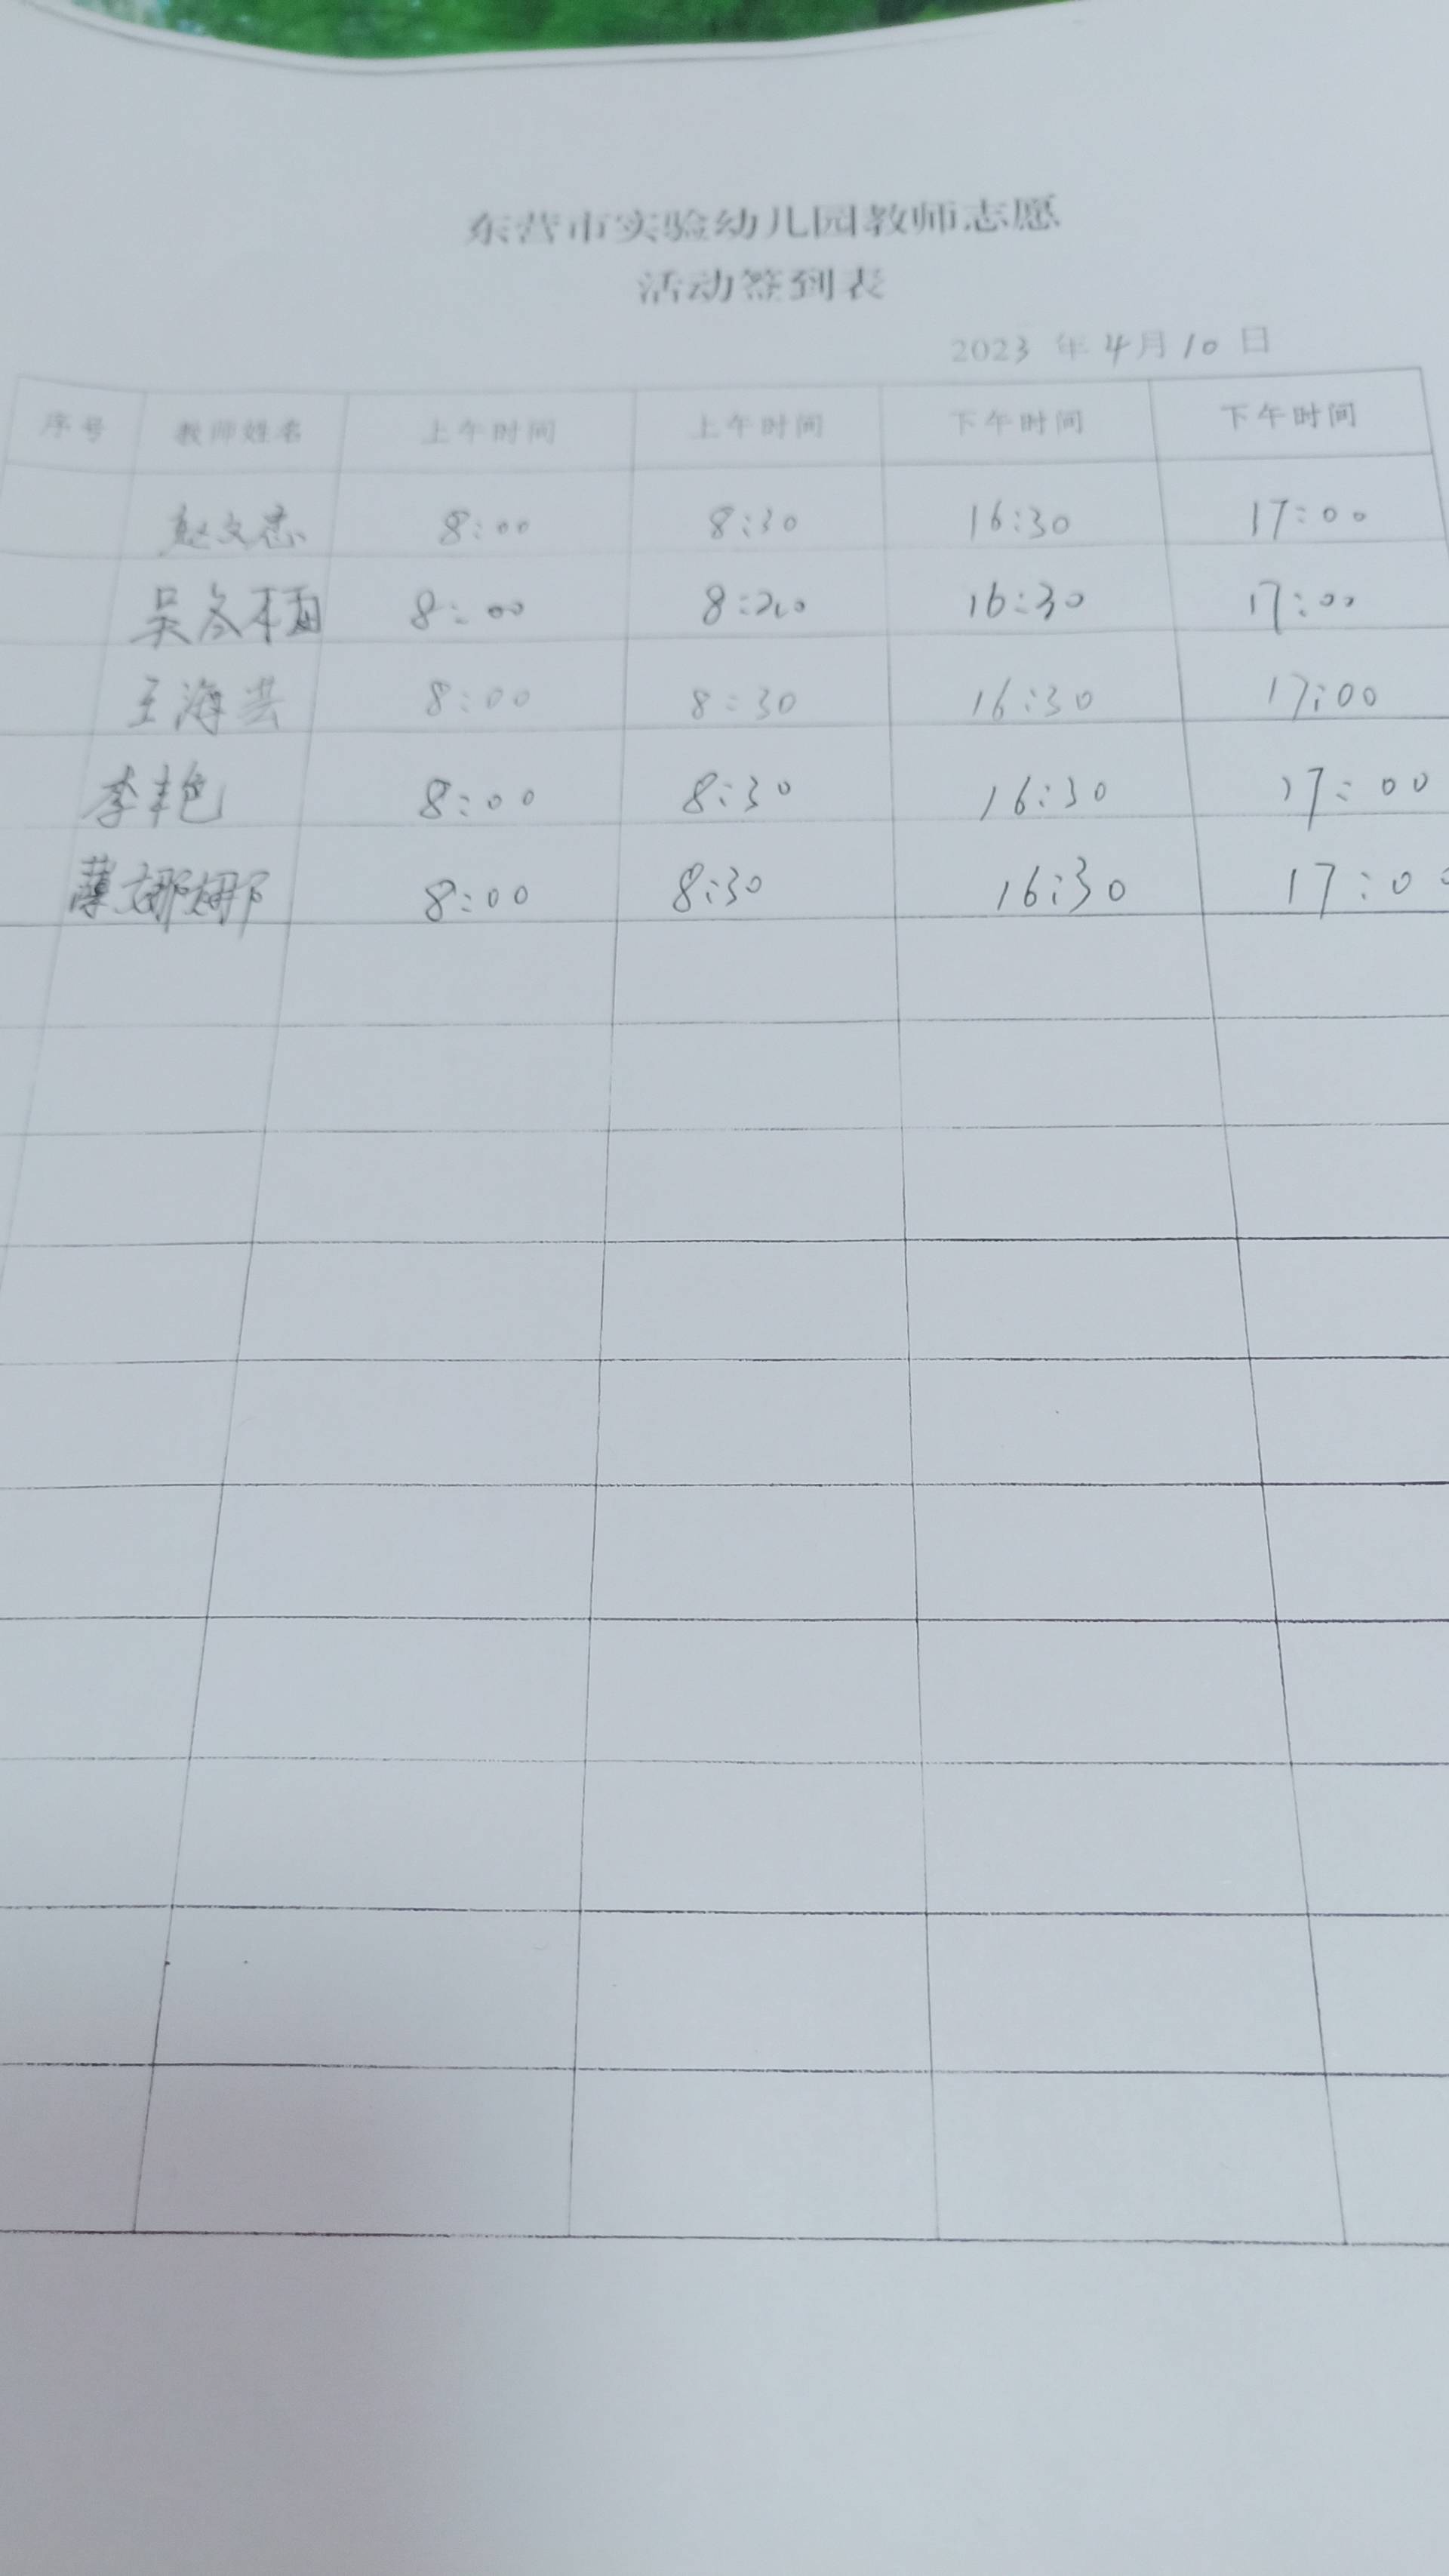 东营市实验幼儿园教师志愿
活动签到表
2023 年 4月10 日
序号 教师姓名 上午时间 上午时间 下午时间 下午时间
赵文志 8:00 8:30 16:30 17:00
吴冬梅 8:00 8:30 16:30 17:00
王海芸 8:00 8:30 16:30 17:00
李艳 8:00 8:30 16:30 17:00
薄娜娜 8:00 8:30 16:30 17:00